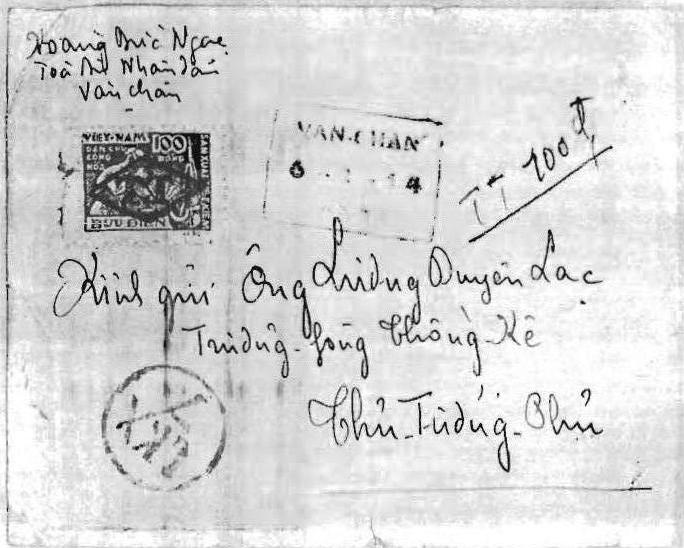 Hoàng Đức Ngọc
Toà Án Nhân dân
Văn Chấn
VIỆT-NAM 100
DÂN CHỦ ĐỒNG
CỘNG
HÒA
SẢN XUẤT
BƯU ĐIỆN
VAN-CHAN
TT 100đ
Kính gửi Ông Lương Duyên Lạc
Trưởng-phòng Thống-Kê
Thủ-Tướng-Phủ